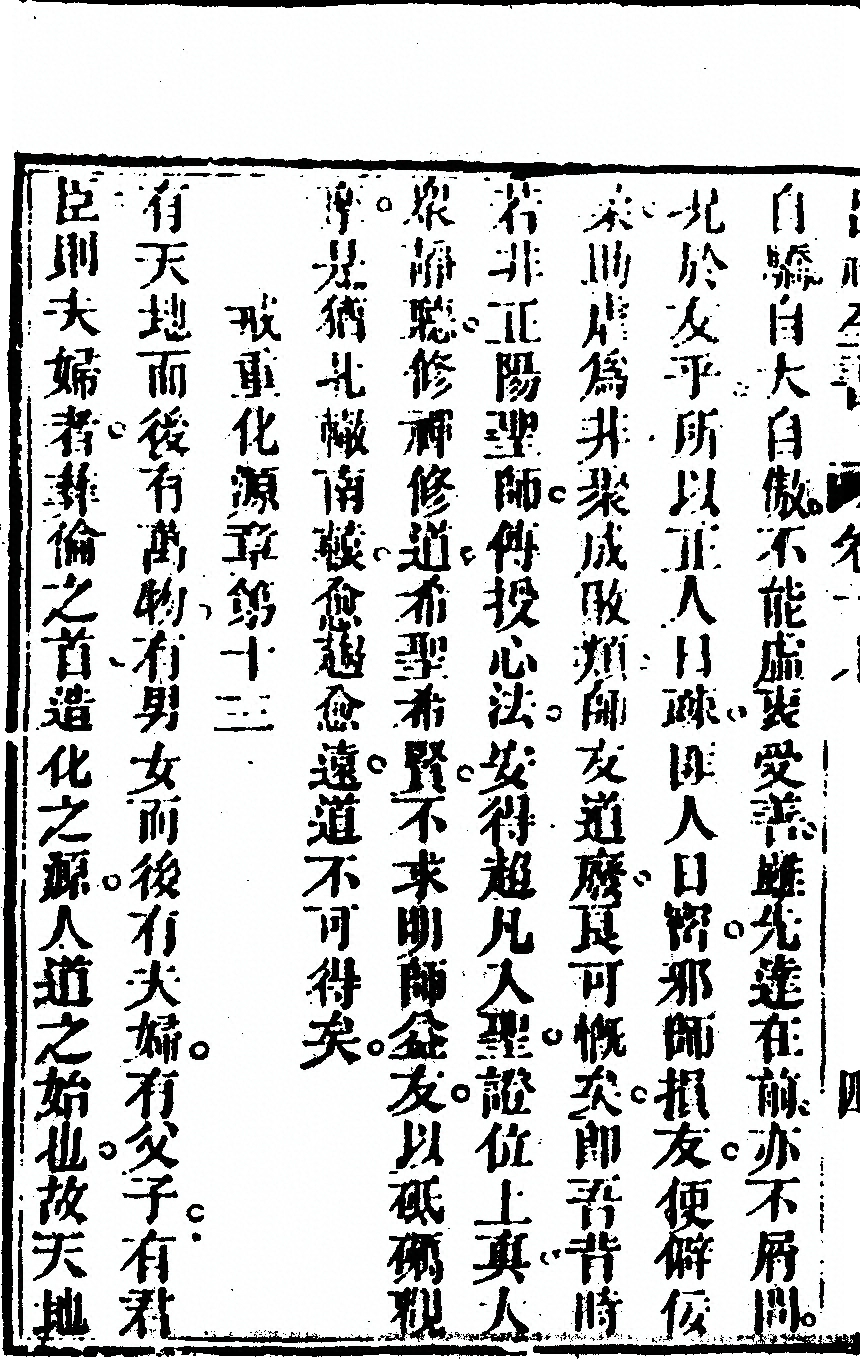 自驕自大自傲。不能虛衷愛善。雖先達在前。亦不屑問。
况於友乎。所以正人日疎。匪人日密。邪師損友。便僻佞
柔。助虐為非。聚成敗類。師友道廢。良可慨矣。卽吾昔時
若非正陽聖師。傳授心法。安得超凡入聖。證位上真。人
衆靜聽。修禪修道。希聖希賢。不求明師益友。以砥礪觀
摩。是猶北轍南轅。愈趨愈遠。道不可得矣。
戒重化源章第十三
有天地而後有萬物。有男女而後有夫婦。有父子。有君
臣。則夫婦者。彝倫之首。造化之源。人道之始也。故天地